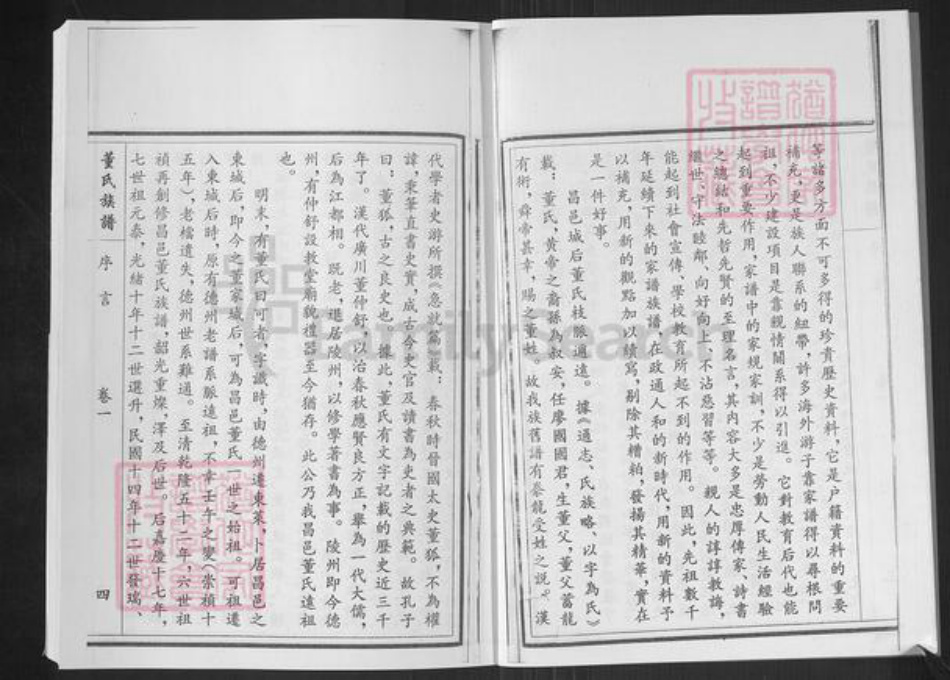 等諸多方面不可多得的珍貴歷史資料，它是户籍資料的重要
補充，更是族人聯系的紐帶，許多海外游子靠家譜得以尋根問
祖，不少建設項目是靠親情關系得以引進。它對教育后代也能
起到重要作用，家譜中的家規家訓，不少是勞動人民生活經驗
之總結和先哲先賢的至理名言，其内容大多是忠厚傳家、詩書
繼世、守法睦鄰、向好向上、不沾惡習等等。親人的諄諄教誨，
能起到社會宣傳、學校教育所起不到的作用。因此，先祖數千
年延續下來的家譜族譜，在政通人和的新時代，用新的資料予
以補充，用新的觀點加以續寫，剔除其糟粕，發揚其精華，實在
是一件好事。
昌邑城后董氏枝脈適遠。據《通志、氏族略、以字為氏》
載：董氏、黄帝之裔孫為叔安，任廖國國君，生董父，董父蓄龍
有術，舜帝甚幸，賜之董姓。故我族舊譜有豢龍受姓之説。漢
代學者史游所撰《急就篇》載：春秋時晉國太史董狐，不為權
諱，秉筆直書史實，成古今史官及讀書為吏者之典範。故孔子
曰：董狐，古之良史也。據此，董氏有文字記載的歷史近三千
年了。漢代廣川董仲舒，以治春秋應賢良方正，舉為一代大儒，
后為江都相。既老，退居陵州，以修學著書為事。陵州即今德
州，有仲舒設教堂廟貌禮器至今猶存。此公乃我昌邑董氏遠祖
也。
明末，有董氏曰可者，字識時，由德州遷東萊，卜居昌邑之
東城后，即今之董家城后，可為昌邑董氏一世之始祖。可祖遷
入東城后時，原有德州老譜系脈遠祖，不幸壬午之變（崇禎十
五年），老檔遺失，德州世系難通。至清乾隆五十二年，六世祖
禎再創修昌邑董氏族譜，韶光重燦，澤及后世。后嘉慶十七年，
七世祖元泰，光緒十年十二世選升，民國十四年十二世發瑞、
董氏族譜 序言 卷一 四
FamilySearch